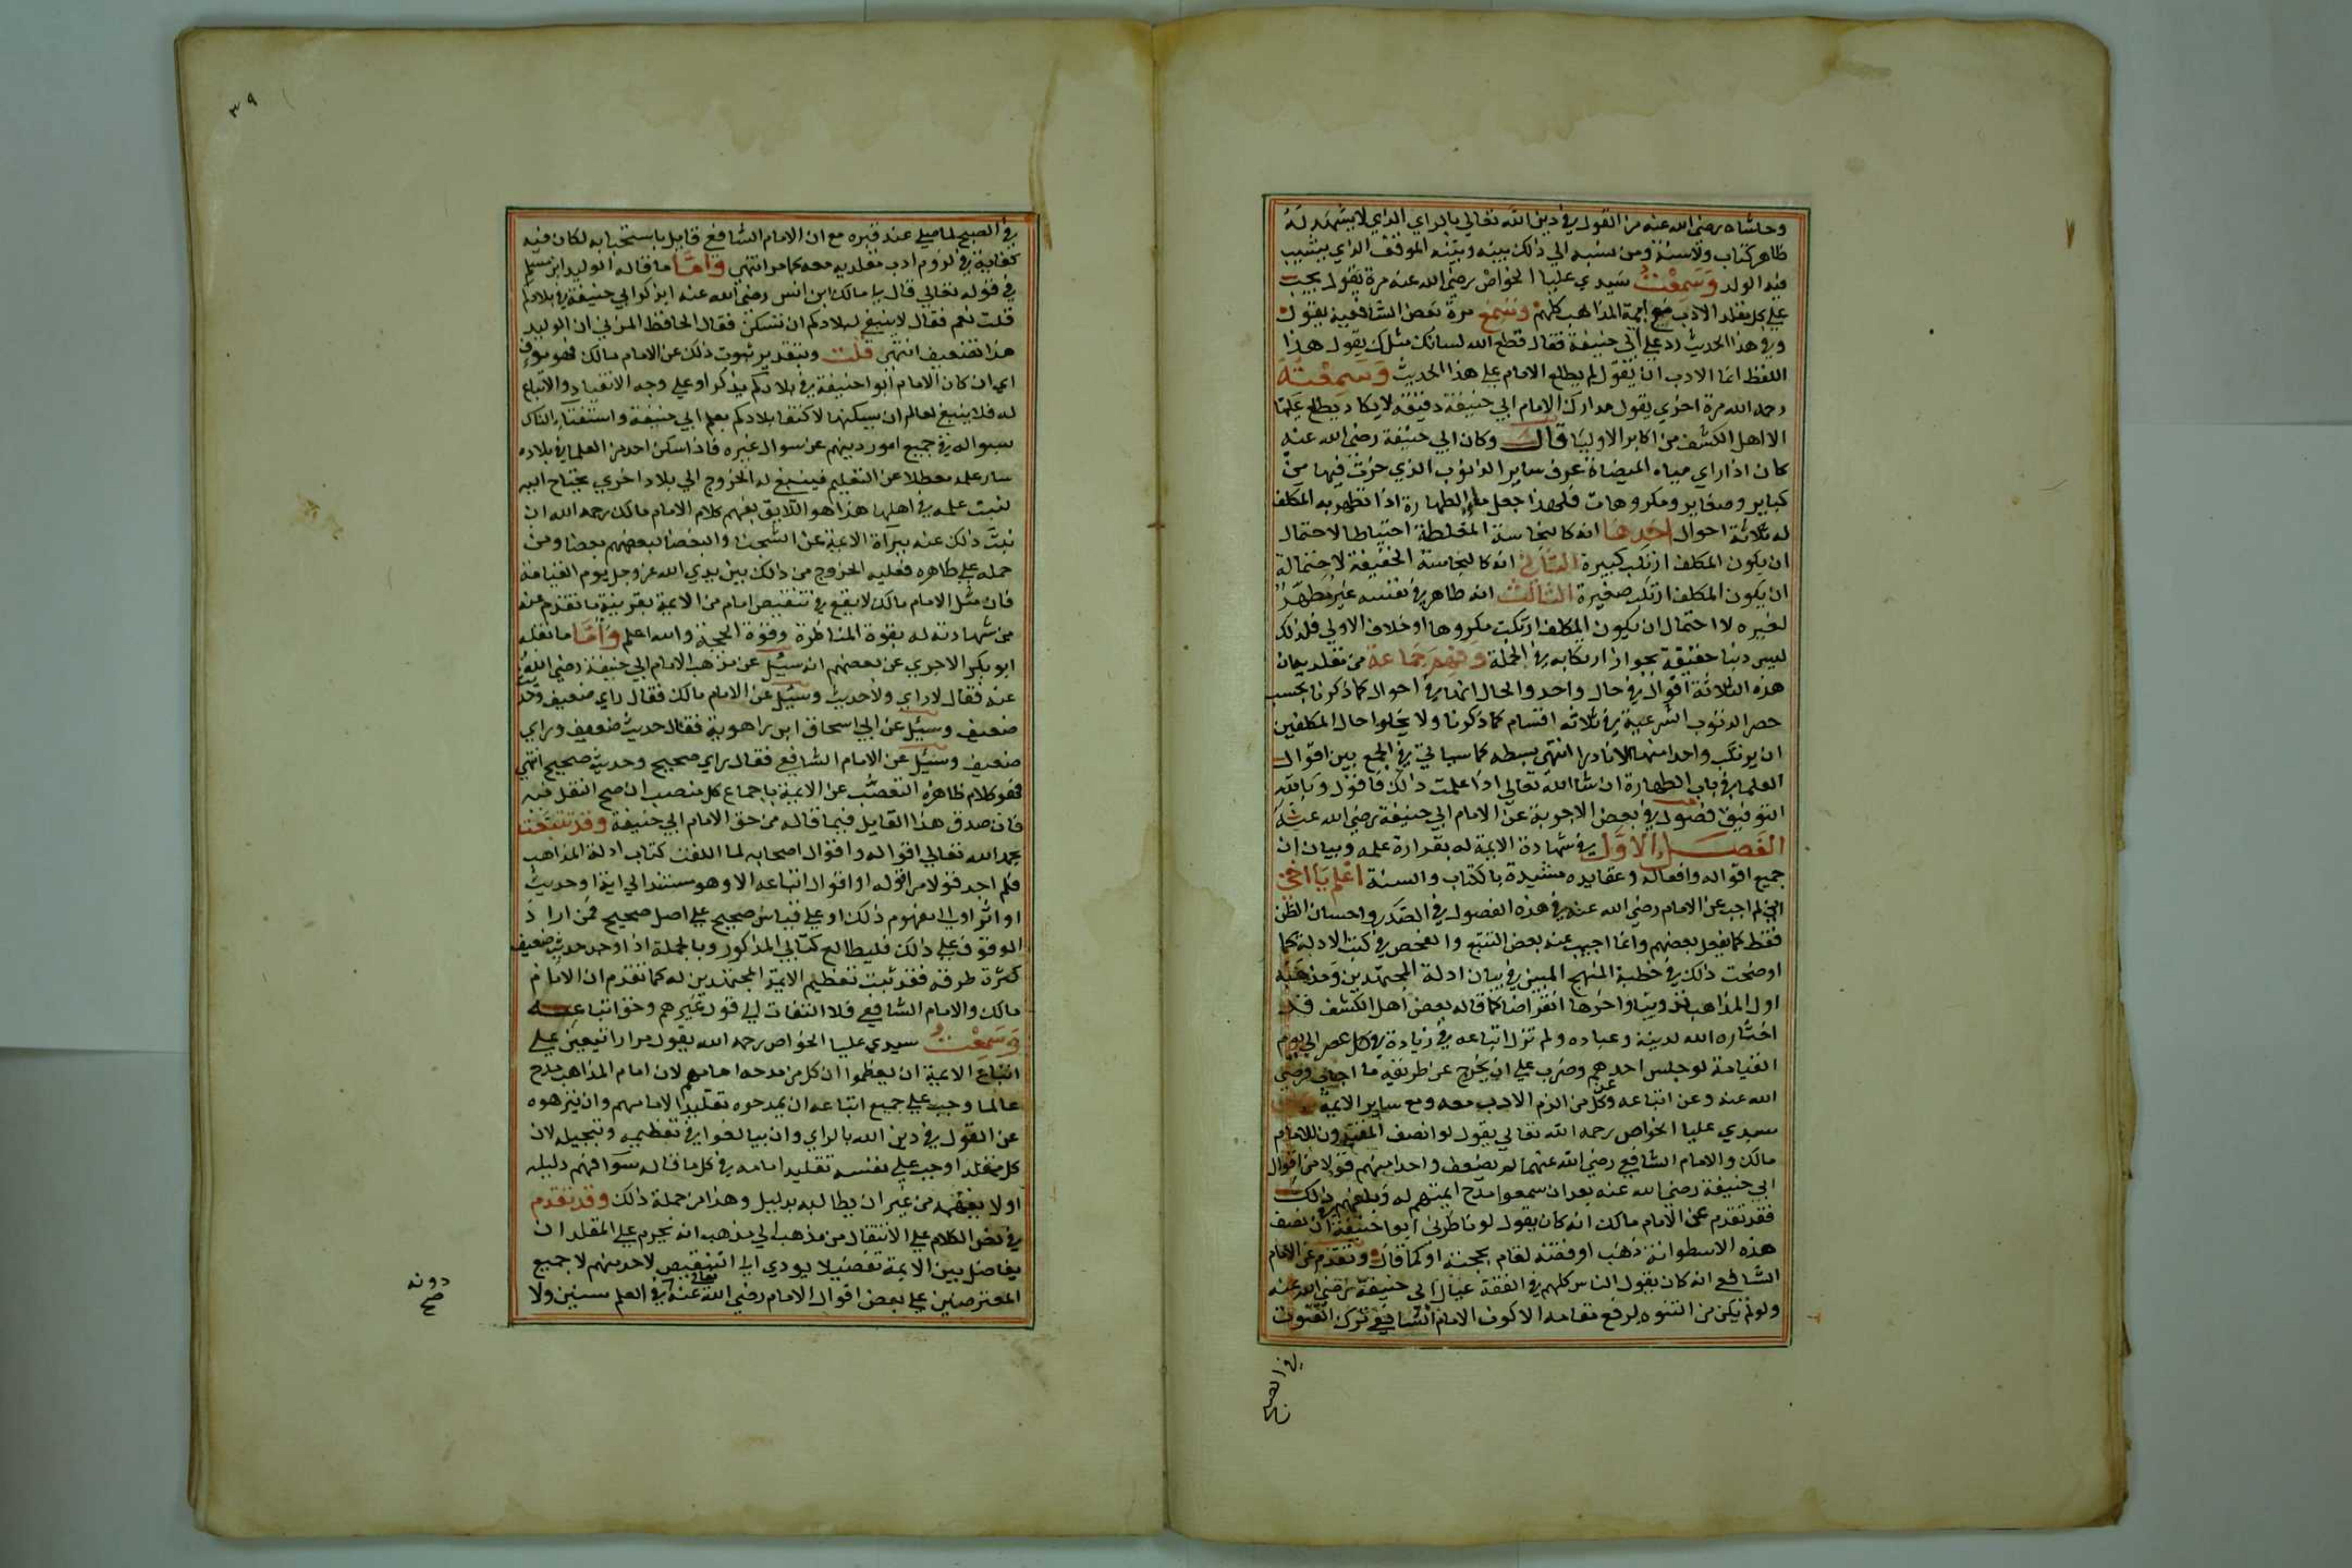 وحاشاه رضي الله عنه من القول في دين الله تعالي بالراي الذي لا يشهد له
ظاهر كتاب ولا سنة ومن نسبه الي ذلك بينه وبينه الموقف الذي يشيب
فيه الولد وسمعت سيدي عليا الخواص رضي الله عنه مرة يقول يجب
علي كل مقلد الادب مع ايمة المذاهب كلهم وسمع مرة بعض الشافعية يقول
وفي هذا الحديث رد علي ابي حنيفة فقال قطع الله لسانك مثلك يقول هذا
اللفظ انما الادب ان يقول لم يطلع الامام علي هذا الحديث وسمعته
رحمه الله مرة اخري يقول مدارك الامام ابي حنيفة دقيقة لا يكاد يطلع عليها
الا اهل الكشف من اكابر الاوليا قال وكان ابي حنيفة رضي الله عنه
كان اذا راي مياه الميضاة عرف ساير الذنوب الذي خرت فيها من
كباير وصغاير ومكروهات فلهذا جعل ماء الطهارة اذا تطهر به المكلف
له ثلاثة احوال احدها انه كالنجاسة المغلطة احتياطا لاحتمال
ان يكون المكلف ارتكب كبيرة الثاني انه كالنجاسة الخفيفة لاحتمال
ان يكون المكلف ارتكب صغيرة الثالث انه طاهر في نفسه غير مطهر
لغيره لا احتمال ان يكون المكلف ارتكبت مكروها او خلاف الاولي فلذلك
ليس دنبا حقيقة بجواز ارتكابه في الجملة وفهم جماعة من مقلديه ان
هذه الثلاثة اقوال في حال واحد والحال انها في احوال كما ذكرنا بحسب
حصر الذنوب الشرعية في ثلاثه اقسام كما ذكرنا ولا يخلوا حال المكلفين
ان يرتكب واحدا منها الا نادرا انتهي بسطه كما سياتي في الجمع بين اقوال
العلما في باب الطهارة ان شا الله تعالي اذا علمت ذلك فاقول وبالله
التوفيق فصول في بعض الاجوبة عن الامام ابي حنيفة رضي الله عنه
الفصل الاول في شهادة الايمة له بغزارة علمه وبيان ان
جميع اقواله وافعاله وعقايده مشيدة بالكتاب والسنة اعلم يا اخي
انني لم اجب عن الامام رضي الله عنه في هذه الفصول في الصدر واحسان الظن
فقط كما يفعل بعضهم وانما اجيب عنه بعض التتبع والفحص في كتب الادلة كما
اوضحت ذلك في خطبة المنهج المبين في بيان ادلة المجتهدين ومذهبه
اول المذاهب تدوينا واخرها انقراضا كما قاله بعض اهل الكشف قد
اختاره الله لدينه وعباده ولم تزل اتباعه في زيادة في كل عصر الي يوم
القيامة لو جلس احدهم وضرب علي ان يخرج عن طريقه ما اجاب فرضي
الله عنه وعن اتباعه وعن كل من الزم الادب معه ومع ساير الايمة
سيدي عليا الخواص رحمه الله تعالي يقول لو انصف المقلدون للامام
مالك والامام الشافعي رضي الله عنهما لم يضعف واحدا منهم قولا من اقوال
ابي حنيفة رضي الله عنه بعد ان سمعوا مدح ايمتهم له وبلغهم ذلك
فقد تقدم عن الامام مالك انه كان يقول لو ناظرني ابوا حنيفة ان نصف
هذه الاسطوانة ذهب او فضة لقام بحجته او كما قال وتقدم عن الامام
الشافعي انه كان يقول الناس كلهم في الفقه عيال ابي حنيفة رضي الله عنه
ولو لم يكن من التنوه لرفع مقامه الا كون الامام الشافعي ترك القنوت
في الصبح
٣٩
في الصبح لما صلي عند قبره مع ان الامام الشافعي قايل باستحبابه لكان فيه
كفاية في لزوم ادب مقلديه معه كما مر انتهي واما ما قاله الوليد ابن مسلم
في قوله تعالي قال يا مالك ابن انس رضي الله عنه ايذكر ابي حنيفة في بلادكم
قلت نعم فقال لا ينبغي لبلادكم ان تسكن فقال الحافظ المزني ان الوليد
هذا تضعيف انتهي قلت وبتقدير ثبوت ذلك عن الامام مالك فهو مووف
اي ان كان الامام ابوا حنيفة في بلادكم يذكر او علي وجه الانقياد والاتباع
له فلا ينبغي لعالم ان يسكنها لاكتفا بلادكم بعلم ابي حنيفة واستفتاء الناس
سواله في جميع امور دينهم عن سوال غيره فاذا سكن احد من العلما في بلاده
سار علمه معطلا عن التعليم فينبغي له الخروج الي بلاد اخري يحتاج اليه
لتبث علمه في اهلها هذا هو اللايق بفهم كلام الامام مالك رحمه الله ان
ثبت ذلك عنه ببرآة الايمة عن الشجنا والبغضا لبعضهم بعضا ومن
حمله علي ظاهره فعليه الخروج من ذلك بين يدي الله عز وجل يوم القيامة
فان مثل الامام مالك لا يقع في تنقيص امام من الايمة بقرينة ما تقدم عنه
من شهادته له بقوة المناظرة وقوة الحجة والله اعلم واما ما نقله
ابو بكر الاجري عن بعضهم انه سيل عن مذهب الامام ابي حنيفة رضي الله
عنه فقال لا راي ولا حديث وسيل عن الامام مالك فقال راي ضعيف وحديث
ضعيف وسيل عن ابي اسحاق ابن راهوية فقال حديث ضعيف وراي
ضعيف وسيل عن الامام الشافعي فقال راي صحيح وحديث صحيح انتهي
فهو كلام ظاهره التعصب عن الايمة باجماع كل منصب ان صح النقل فيه
فان صدق هذا القايل فيما قاله من حق الامام ابي حنيفة وقد تتبعت
بحمد الله تعالي اقواله واقوال اصحابه لما الفت كتاب ادلة المذاهب
فلم اجد قولا من اقوله او اقوال اتباعه الا وهو مستند الي اية او حديث
او اثر او الي مفهوم ذلك او علي قياس صحيح علي اصل صحيح فمن اراد
الوقوف علي ذلك فليطالع كتابي المذكور وبالجملة اذا وجد حديث ضعيف
كثرة طرقه فقد ثبت تعظيم الايمة المجتهدين له كما تقدم ان الامام
مالك والامام الشافعي فلا التفات الي قول غيرهم وحق اتباعه
وسمعت سيدي عليا الخواص رحمه الله يقول مرارا تيعين علي
اتباع الايمة ان يعظموا ان كل من مدحه امامهم لان امام المذاهب مدح
عالما وجب علي جميع اتباعه ان يمدحوه تقليدا لامامهم وان ينزهوه
عن القول في دين الله بالراي وان يبالغوا في تعظيمه وتبجيله لان
كل مقلد اوجب علي نفسه تقليد امامه في كل ما قاله سوا فهم دليله
او لا يفهمه من غير ان يطالبه بدليل وهذا من جملة ذلك وقد تقدم
في نص الكلام علي الانتقال من مذهب الي مذهب انه يحرم علي المقلد ان
يفاضل بين الايمة تفضيلا يودي الي التنقيص لاحد منهم لا جميع
المعترضين علي بعض اقوال الامام رضي الله تعالي عنه في العلم سنين ولا
دونه
صح